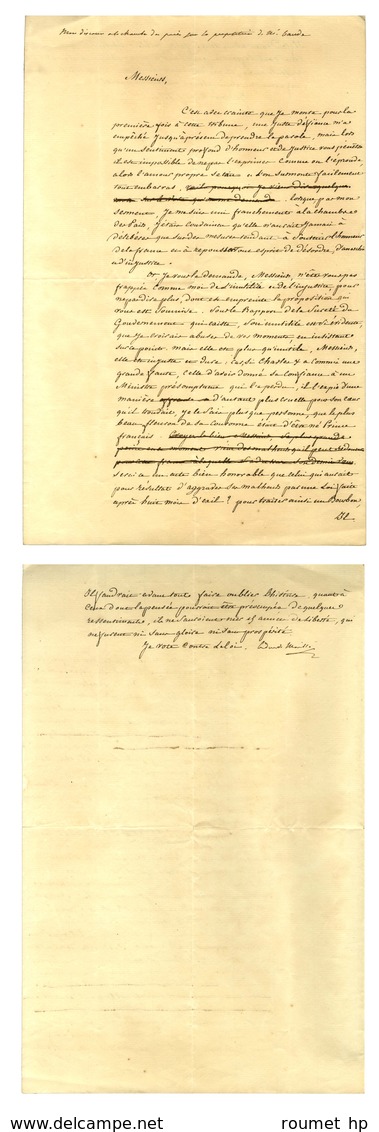 Mon discours à la chambre des pairs sur la proposition de Mr Baude
Messieurs,
C'est avec crainte que je monte pour la
première fois à cette tribune, une juste défiance m'a
empêché jusqu'à présent de prendre la parole, mais lors
qu'un sentiment profond d'honneur et de justice vous pénètre
il est impossible de ne pas l'exprimer comme on l'éprouve
alors l'amour propre se tait et l'on surmonte facilement
tout embarras. lorsque par mon
serment je me suis uni franchement à la chambre
des Pairs, j'étais convaincu qu'elle n'aurait jamais à
délibérer que sur des mesures tendant à soutenir l'honneur
de la france et à repousser tout esprit de désordre, d'anarchie
et d'injustice.
Or je vous le demande, Messieurs, n'êtes vous pas
frappés comme moi de l'inutilité et de l'injustice pour
ne pas dire plus, dont est empreinte la proposition qui
vous est soumise. Sous le Rapport de la Sureté du
Gouvernement qui existe, son inutilité est si évidente,
que je croirais abuser de vos moments en insistant
sur ce point. mais elle est plus qu'inutile, Messieurs,
elle est injuste et dure. car si Charles X a commis une
grande faute, celle d'avoir donné sa confiance à un
Ministre présomptueux qui l'a perdu, il l'expie d'une
manière d'autant plus cruelle pour son cœur
qu'il voudrait, je le sais plus que personne, que le plus
beau fleuron de sa couronne était d'être né Prince
français.
serait-ce un acte bien honorable que celui qui aurait
pour résultat d'aggraver ses malheurs par une Loi faite
après huit mois d'exil ? pour traiter ainsi un Bourbon,
Il
Il faudrait avant tout faire oublier l'histoire. quant à
ceux dont la pensée pourrait être préoccupée de quelques
ressentiments, ils ne sauraient nier 15 années de liberté, qui
ne furent ni sans gloire ni sans prospérité.
Je vote contre la loi.
roumet hp